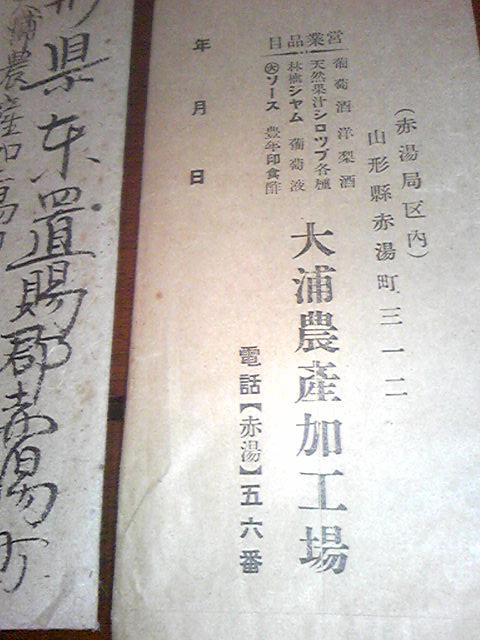 (赤湯局区内)
山形縣赤湯町三一二
大浦農産加工場
電話【赤湯】五六番
営業品目
葡萄酒 洋梨酒
天然果汁シロップ各種
林檎ジャム 葡萄液
ソース 豊年印食酢
年 月 日
形県东置賜郡赤湯町
浦農産加工場